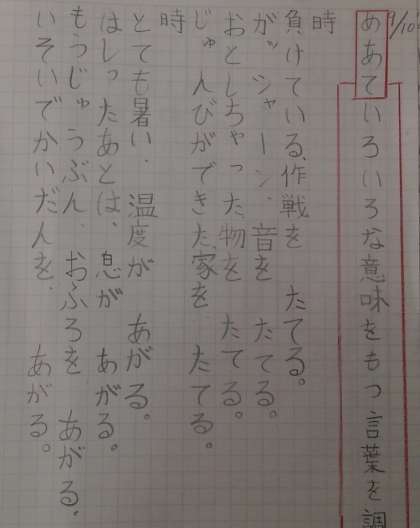 9/10
めあて いろいろな意味をもつ言葉を調
時
負けている、作戦を たてる。
ガッシャーン、音を たてる。
おとしちゃった、物を たてる。
じゅんびができた、家を たてる。
時
とても暑い、温度が あがる。
はしったあとは、息が あがる。
もうじゅうぶん、おふろを あがる。
いそいでかいだんを、あがる。